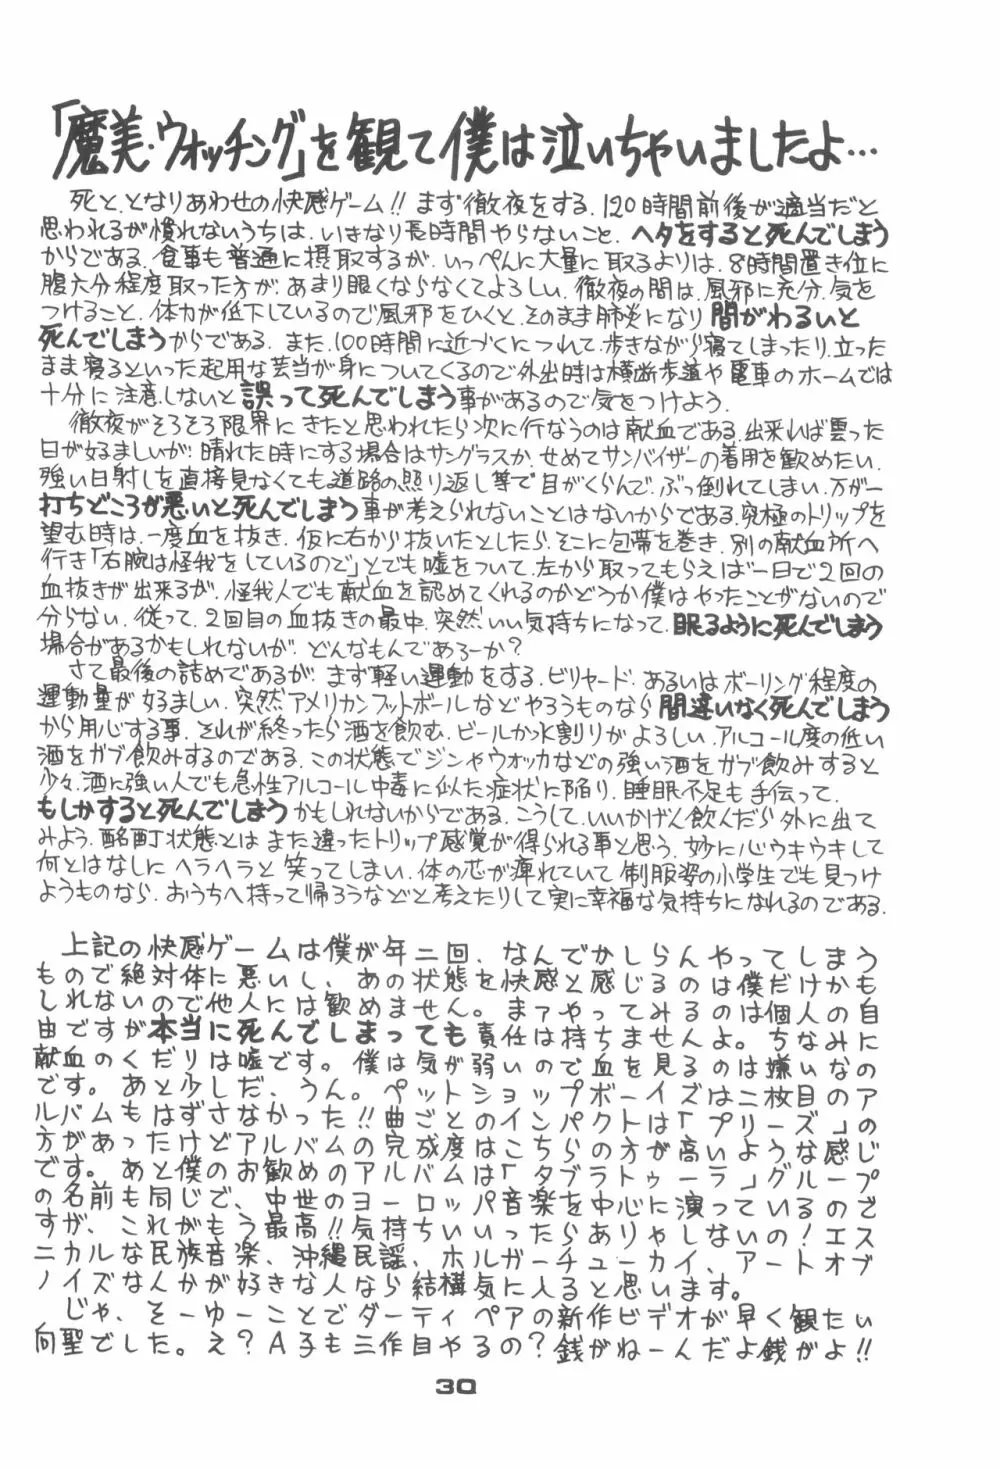 「魔美・ウォッチング」を観て僕は泣いちゃいましたよ…
死と、となりあわせの快感ゲーム!! まず徹夜をする。120時間前後が適当だと
思われるが慣れないうちは、いきなり長時間やらないこと、ヘタをすると死んでしまう
からである。食事も普通に摂取するが、いっぺんに大量に取るよりは、8時間置き位に
腹六分程度取った方が、あまり眠くならなくてよろしい。徹夜の間は、風邪に充分、気を
つけること、体力が低下しているので風邪をひくと、そのまま肺炎になり間がわるいと
死んでしまうからである。また、100時間に近づくにつれて、歩きながら寝てしまったり、立った
まま寝るといった起用な芸当が身についてくるので外出時は横断歩道や電車のホームでは
十分に注意しないと誤って死んでしまう事があるので気をつけよう。
徹夜がそろそろ限界にきたと思われたら次に行なうのは献血である。出来れば曇った
日が好ましいが、晴れた時にする場合はサングラスか、せめてサンバイザーの着用を歓めたい。
強い日射しを直接見なくても道路の照り返し等で目がくらんで、ぶっ倒れてしまい、万が一
打ちどころが悪いと死んでしまう事が考えられないことはないからである。究極のトリップを
望む時は、一度血を抜き、仮に右から抜いたとしたら、そこに包帯を巻き、別の献血所へ
行き「右腕は怪我をしているので」とでも嘘をついて、左から取ってもらえば一日で2回の
血抜きが出来るが、怪我人でも献血を認めてくれるのかどうか僕はやったことがないので
分らない。従って、2回目の血抜きの最中、突然、いい気持ちになって、眠るように死んでしまう
場合があるかもしれないが、どんなもんであろーか?
さて最後の詰めであるが、まず軽い運動をする。ビリヤード、あるいはボーリング程度の
運動量が好ましい。突然アメリカンフットボールなどやろうものなら間違いなく死んでしまう
から用心する事、それが終ったら酒を飲む。ビールか水割りがよろしい。アルコール度の低い
酒をガブ飲みするのである。この状態でジンやウォッカなどの強い酒をガブ飲みすると
少々、酒に強い人でも急性アルコール中毒に似た症状に陥り、睡眠不足も手伝って、
もしかすると死んでしまうかもしれないからである。こうして、いいかげん飲んだら外に出て
みよう。酩酊状態とはまた違ったトリップ感覚が得られる事と思う。妙に心ウキウキして
何とはなしにヘラヘラと笑ってしまい、体の芯が痺れていて制服姿の小学生でも見つけ
ようものなら、おうちへ持って帰ろうなどと考えたりして実に幸福な気持ちになれるのである。
上記の快感ゲームは僕が年二回、なんでかしらんやってしまう
もので絶対体に悪いし、あの状態を快感と感じるのは僕だけかも
しれないので他人には歓めません。まァやってみるのは個人の自
由ですが本当に死んでしまっても責任は持ちませんよ。ちなみに
献血のくだりは嘘です。僕は気が弱いので血を見るのは嫌いなの
です。あと少しだ、うん。ペットショップボーイズは二枚目のア
ルバムもはずさなかった!!曲ごとのインパクトは「プリーズ」の
方があったけどアルバムの完成度はこちらの方が高いような感じ
です。あと僕のお歓めのアルバムは「タブラトゥーラ」グループ
の名前も同じで、中世のヨーロッパ音楽を中心に演っているので
すが、これがもう最高!!気持ちいいったらありゃしないの!エス
ニカルな民族音楽、沖縄民謡、ホルガーチューカイ、アートオブ
ノイズなんかが好きな人なら結構気に入ると思います。
じゃ、そーゆーことでダーティペアの新作ビデオが早く観たい
向聖でした。え?A子も三作目やるの?銭がねーんだよ銭がよ!!
30